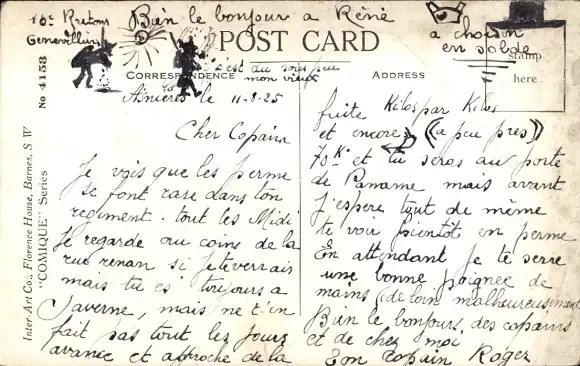 Bien le bonjour a Réné
Genevilliers
a choison
en solde
POST CARD
c'est du
mon vieux
CORRESPONDENCE
ADDRESS
stamp
here
Asnières le 11-8-25
Cher Copain
Je vois que les perme
se font rare dans ton
regiment. tout les Midi
Je regarde au coins de la
rue renan si Je te verrais
mais tu es toujours a
Saverne, mais ne t'en
fait pas tout les Jours
avance et approche de la
fuite Kilos par Kilos
et encore ((a peu pres))
70K. et tu seras au porte
de Paname mais avant
J'espere tout de même
te voir bientot en perme
En attendant Je te serre
une bonne poignee de
mains (de loin malheureusement
Bien le bonjours, des copains
et de chez moi
Ton copain Roger
Inter-Art Co., Florence House, Barnes, S W
"COMIQUE" Series
No 4153